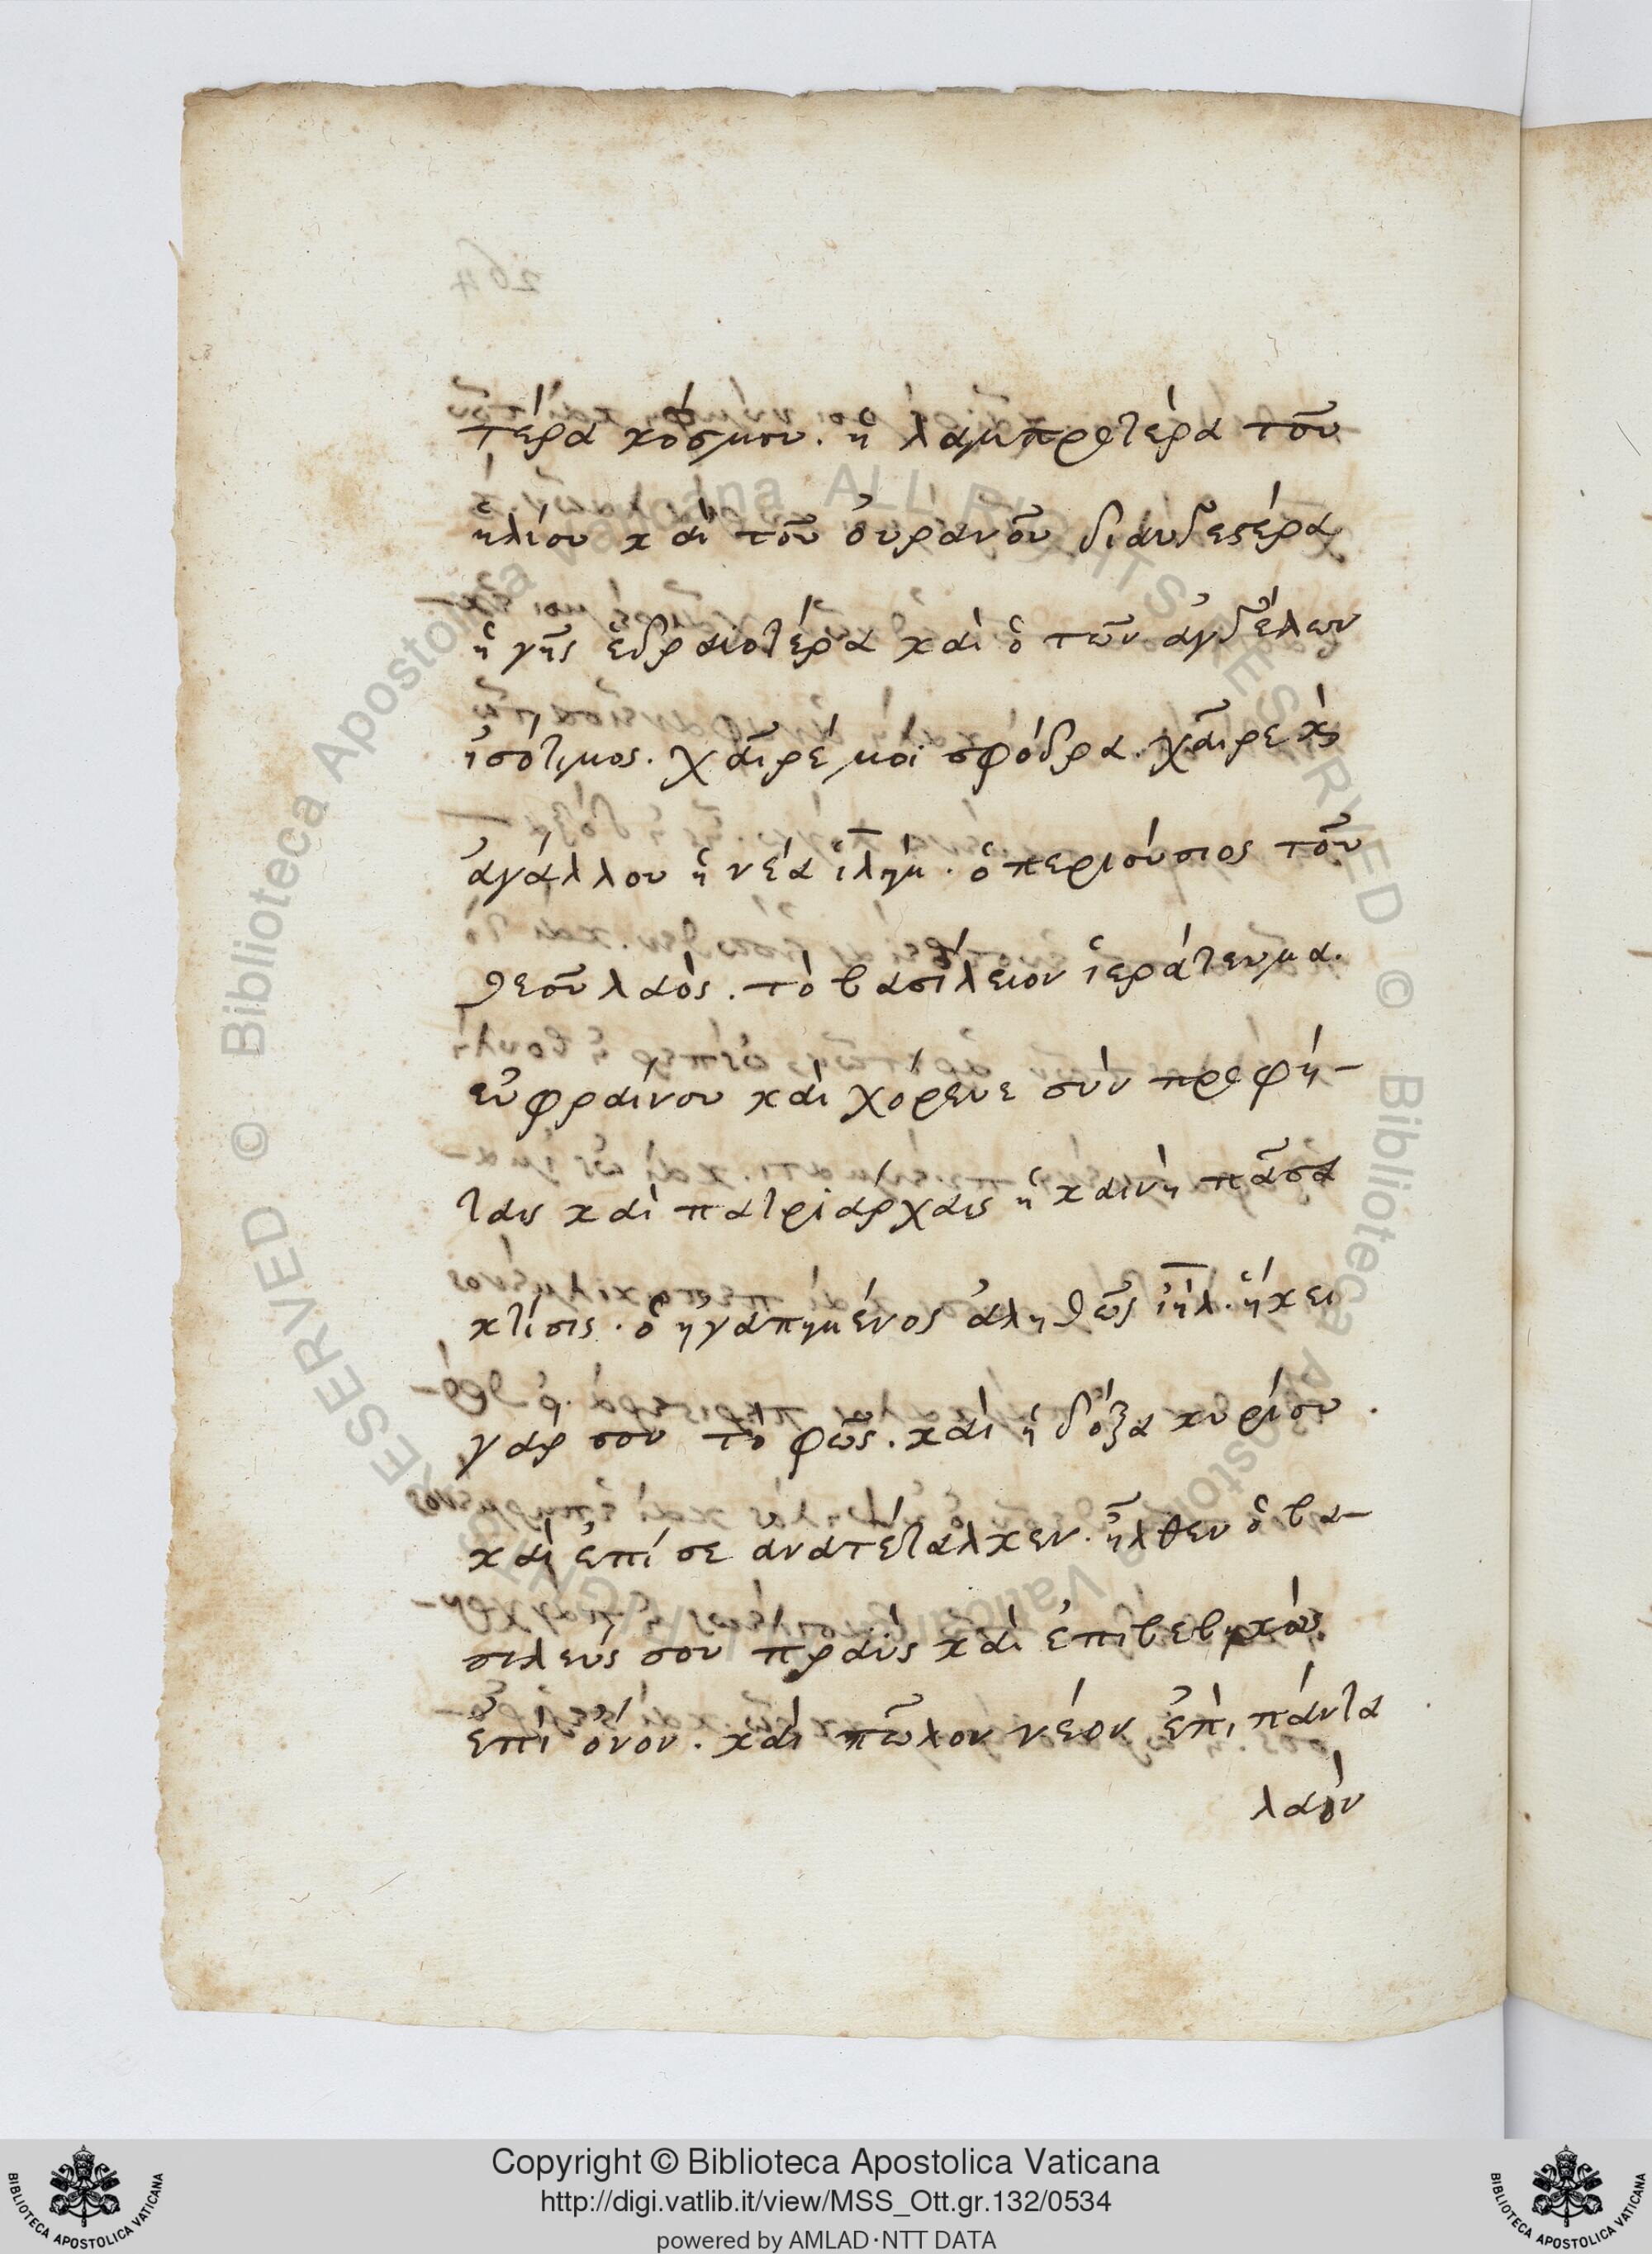 τέρα κόσμου. ἡ λαμπροτέρα τοῦ
ἡλίου καὶ τοῦ οὐρανοῦ διαυγεστέρα
ἡ γῆς ἑδραιοτέρα καὶ ὁ τῶν ἀγγέλων
ἰσότιμος. χαῖρέ μοι σφόδρα. χαῖρε κ̀
ἀγάλλου ἡ νέα ἱλῆμ. ὁ περιούσιος τοῦ
θεοῦ λαὸς. τὸ βασίλειον ἱεράτευμα.
εὐφραίνου καὶ χόρευε σὺν προφή-
ταις καὶ πατριάρχαις ἡ καινὴ πᾶσα
κτίσις. ὁ ἠγαπημένος ἀληθῶς ἰῆλ. ἥκει
γάρ σου τὸ φῶς. καὶ ἡ δόξα κυρίου.
καὶ ἐπί σε ἀνατέταλκεν. ἦλθεν ὁ βα-
σιλεύς σου πραΰς καὶ ἐπιβεβηκὼς
ἐπὶ ὄνον. καὶ πῶλον νέον ἐπὶ πάντα
λαὸν
Copyright © Biblioteca Apostolica Vaticana
http://digi.vatlib.it/view/MSS_Ott.gr.132/0534
powered by AMLAD·NTT DATA
BIBLIOTECA APOSTOLICA VATICANA
BIBLIOTECA APOSTOLICA VATICANA